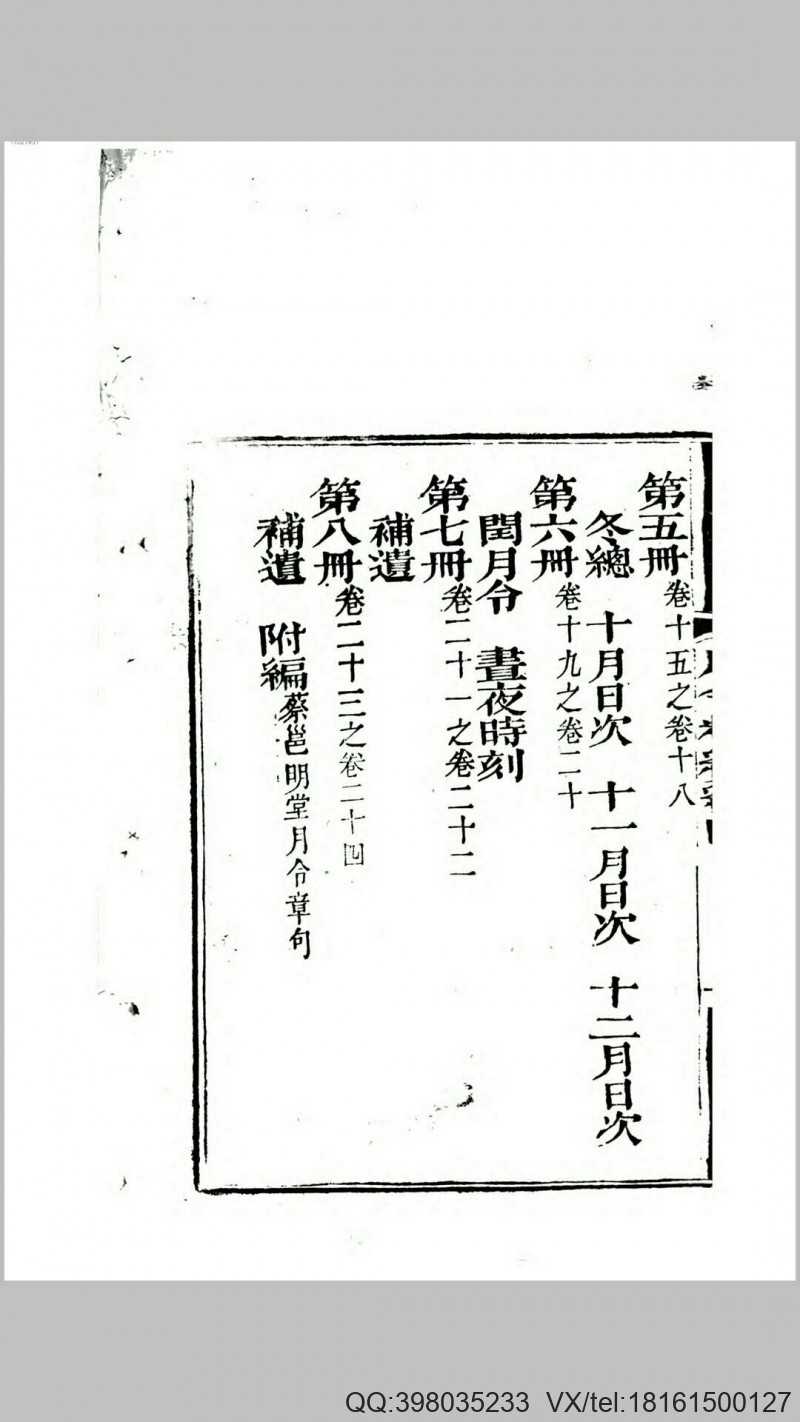 第五冊 卷十五之卷十八
冬總 十月日次 十一月日次 十二月日次
第六冊 卷十九之卷二十
閏月令 晝夜時刻
第七冊 卷二十一之卷二十二
補遺
第八冊 卷二十三之卷二十四
補遺 附編 蔡邕明堂月令章句
QQ:398035233 VX/tel:18161500127